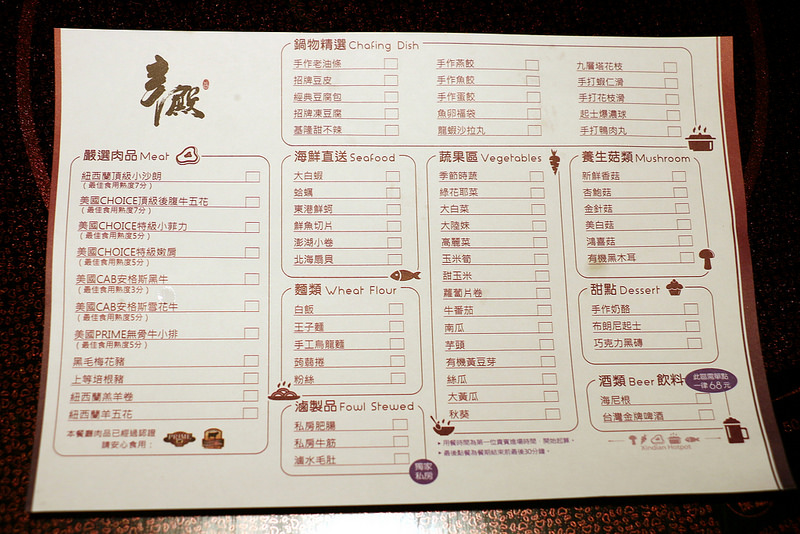 鍋物精選 Chafing Dish
手作老油條
招牌豆皮
經典豆腐包
招牌凍豆腐
基隆甜不辣
手作燕餃
手作魚餃
手作蛋餃
魚卵福袋
龍蝦沙拉丸
九層塔花枝
手打蝦仁滑
手打花枝滑
起士爆濃球
手打鴨肉丸
嚴選肉品 Meat
紐西蘭頂級小沙朗
(最佳食用熟度7分)
美國CHOICE頂級後腹牛五花
(最佳食用熟度7分)
美國CHOICE特級小菲力
(最佳食用熟度5分)
美國CHOICE特級嫩肩
(最佳食用熟度5分)
美國CAB安格斯黑牛
(最佳食用熟度3分)
美國CAB安格斯雪花牛
(最佳食用熟度5分)
美國PRIME無骨牛小排
(最佳食用熟度5分)
黑毛梅花豬
上等培根豬
紐西蘭羔羊卷
紐西蘭羊五花
本餐廳肉品已經過認證
請安心食用：
PRIME
海鮮直送 Seafood
大白蝦
蛤蠣
東港鮮蚵
鮮魚切片
澎湖小卷
北海扇貝
麵類 Wheat Flour
白飯
王子麵
手工烏龍麵
蒟蒻捲
粉絲
滷製品 Fowl Stewed
私房肥腸
私房牛筋
滷水毛肚
獨家
私房
蔬果區 Vegetables
季節時蔬
綠花耶菜
大白菜
大陸妹
高麗菜
玉米筍
甜玉米
蘿蔔片卷
牛番茄
南瓜
芋頭
有機黃豆芽
絲瓜
大黃瓜
秋葵
▸用餐時間為第一位貴賓進場時間，開始起算。
▸最後點餐為餐期結束前最後30分鐘。
養生菇類 Mushroom
新鮮香菇
杏鮑菇
金針菇
美白菇
鴻喜菇
有機黑木耳
甜點 Dessert
手作奶酪
布朗尼起士
巧克力黑磚
酒類 Beer 飲料
此區需單點
一律68元
海尼根
台灣金牌啤酒
Xindian Hotpot